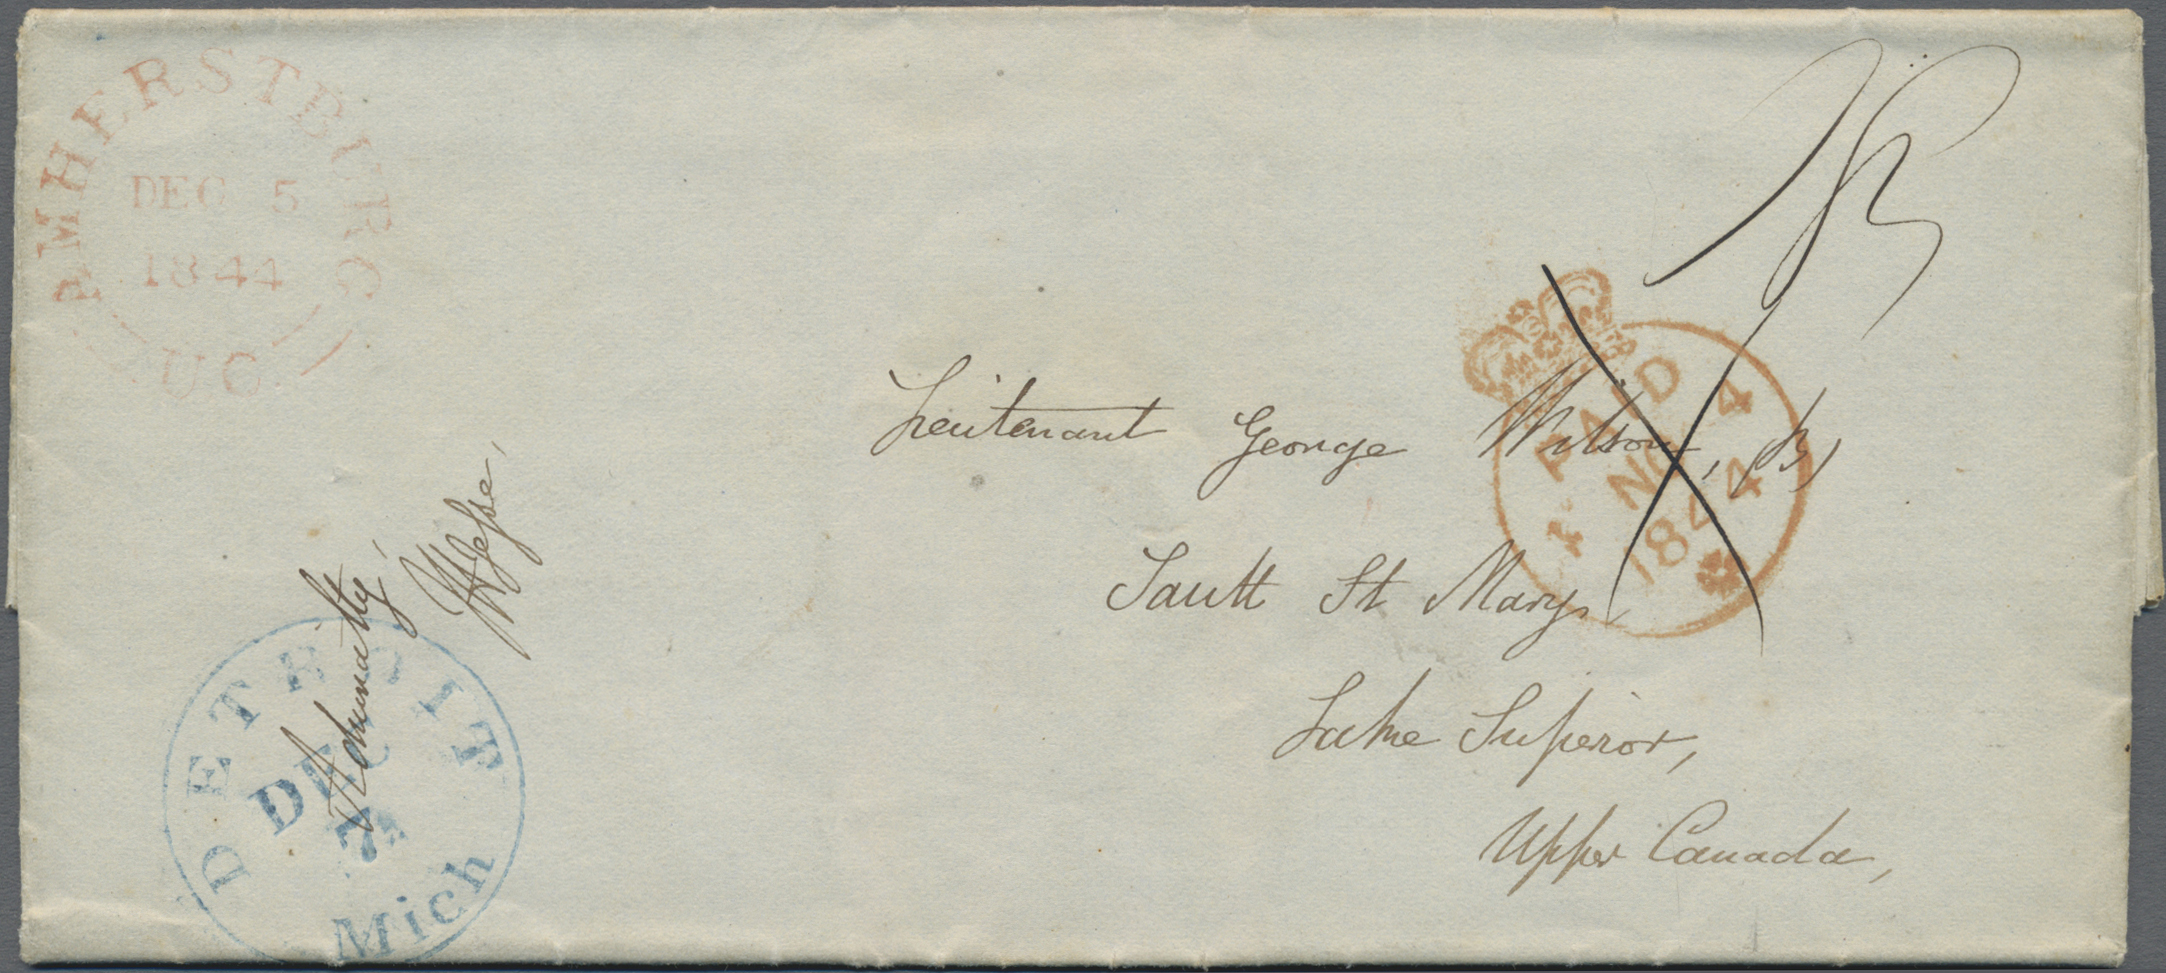 AMHERSTBURG
DEC 5
1844
U.C.
PAID
4 NO 4
1844
Lieutenant George Wilson, (B)
Sault St Marys
Lake Superior,
Upper Canada,
Admiralty,
DETROIT
DEC
7
Mich